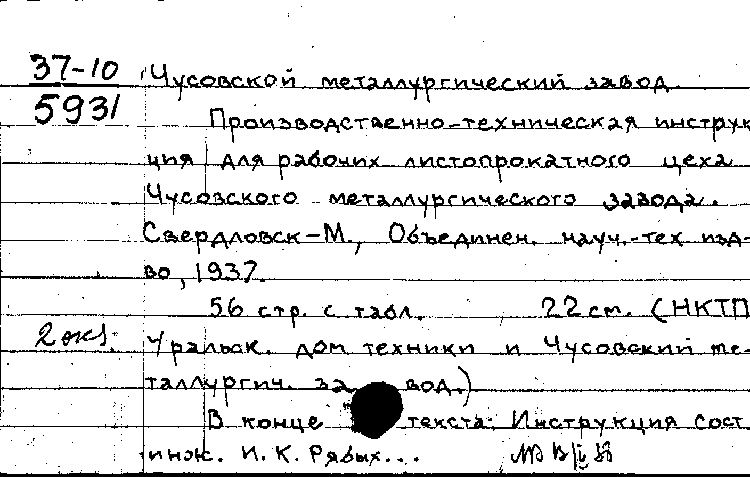 37-10 Чусовской металлургический завод.
5931
Производственно-техническая инструк
ция для рабочих листопрокатного цеха
Чусовского металлургического завода.
Свердловск-М., Объединен. науч.-тех. изд-
во, 1937.
56 стр. с табл. 22 см. (НКТП
2 экз. Уральск. дом техники и Чусовский ме-
таллургич. завод.)
В конце текста: Инструкция сост.
инж. И. К. Рябых...